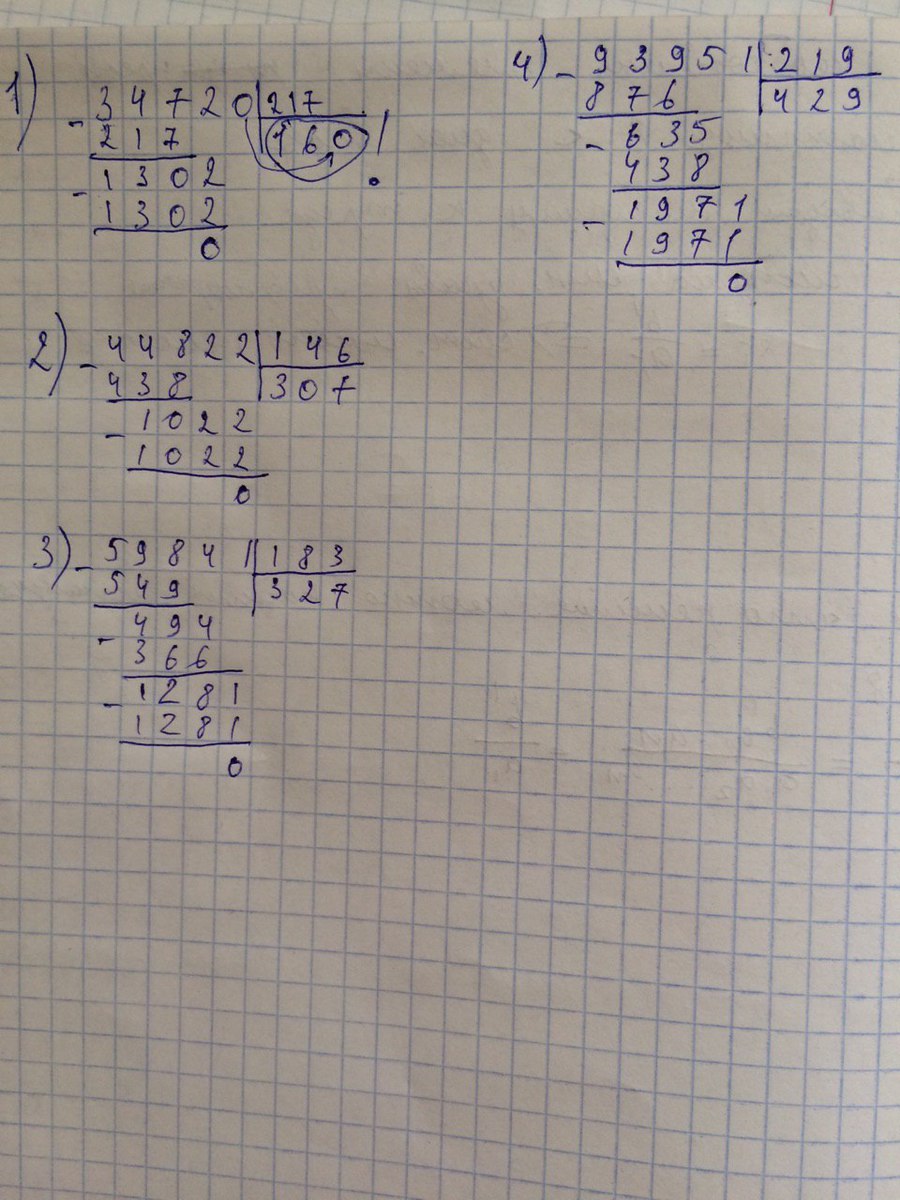 1) - 3 4 7 2 0 | 217
2 1 7 | 1 6 0
- 1 3 0 2
1 3 0 2
0
2) - 4 4 8 2 2 | 1 4 6
4 3 8 | 3 0 7
- 1 0 2 2
1 0 2 2
0
3) - 5 9 8 4 1 | 1 8 3
5 4 9 | 3 2 7
- 4 9 4
3 6 6
- 1 2 8 1
1 2 8 1
0
4) - 9 3 9 5 1 | 2 1 9
8 7 6 | 4 2 9
- 6 3 5
4 3 8
- 1 9 7 1
1 9 7 1
0